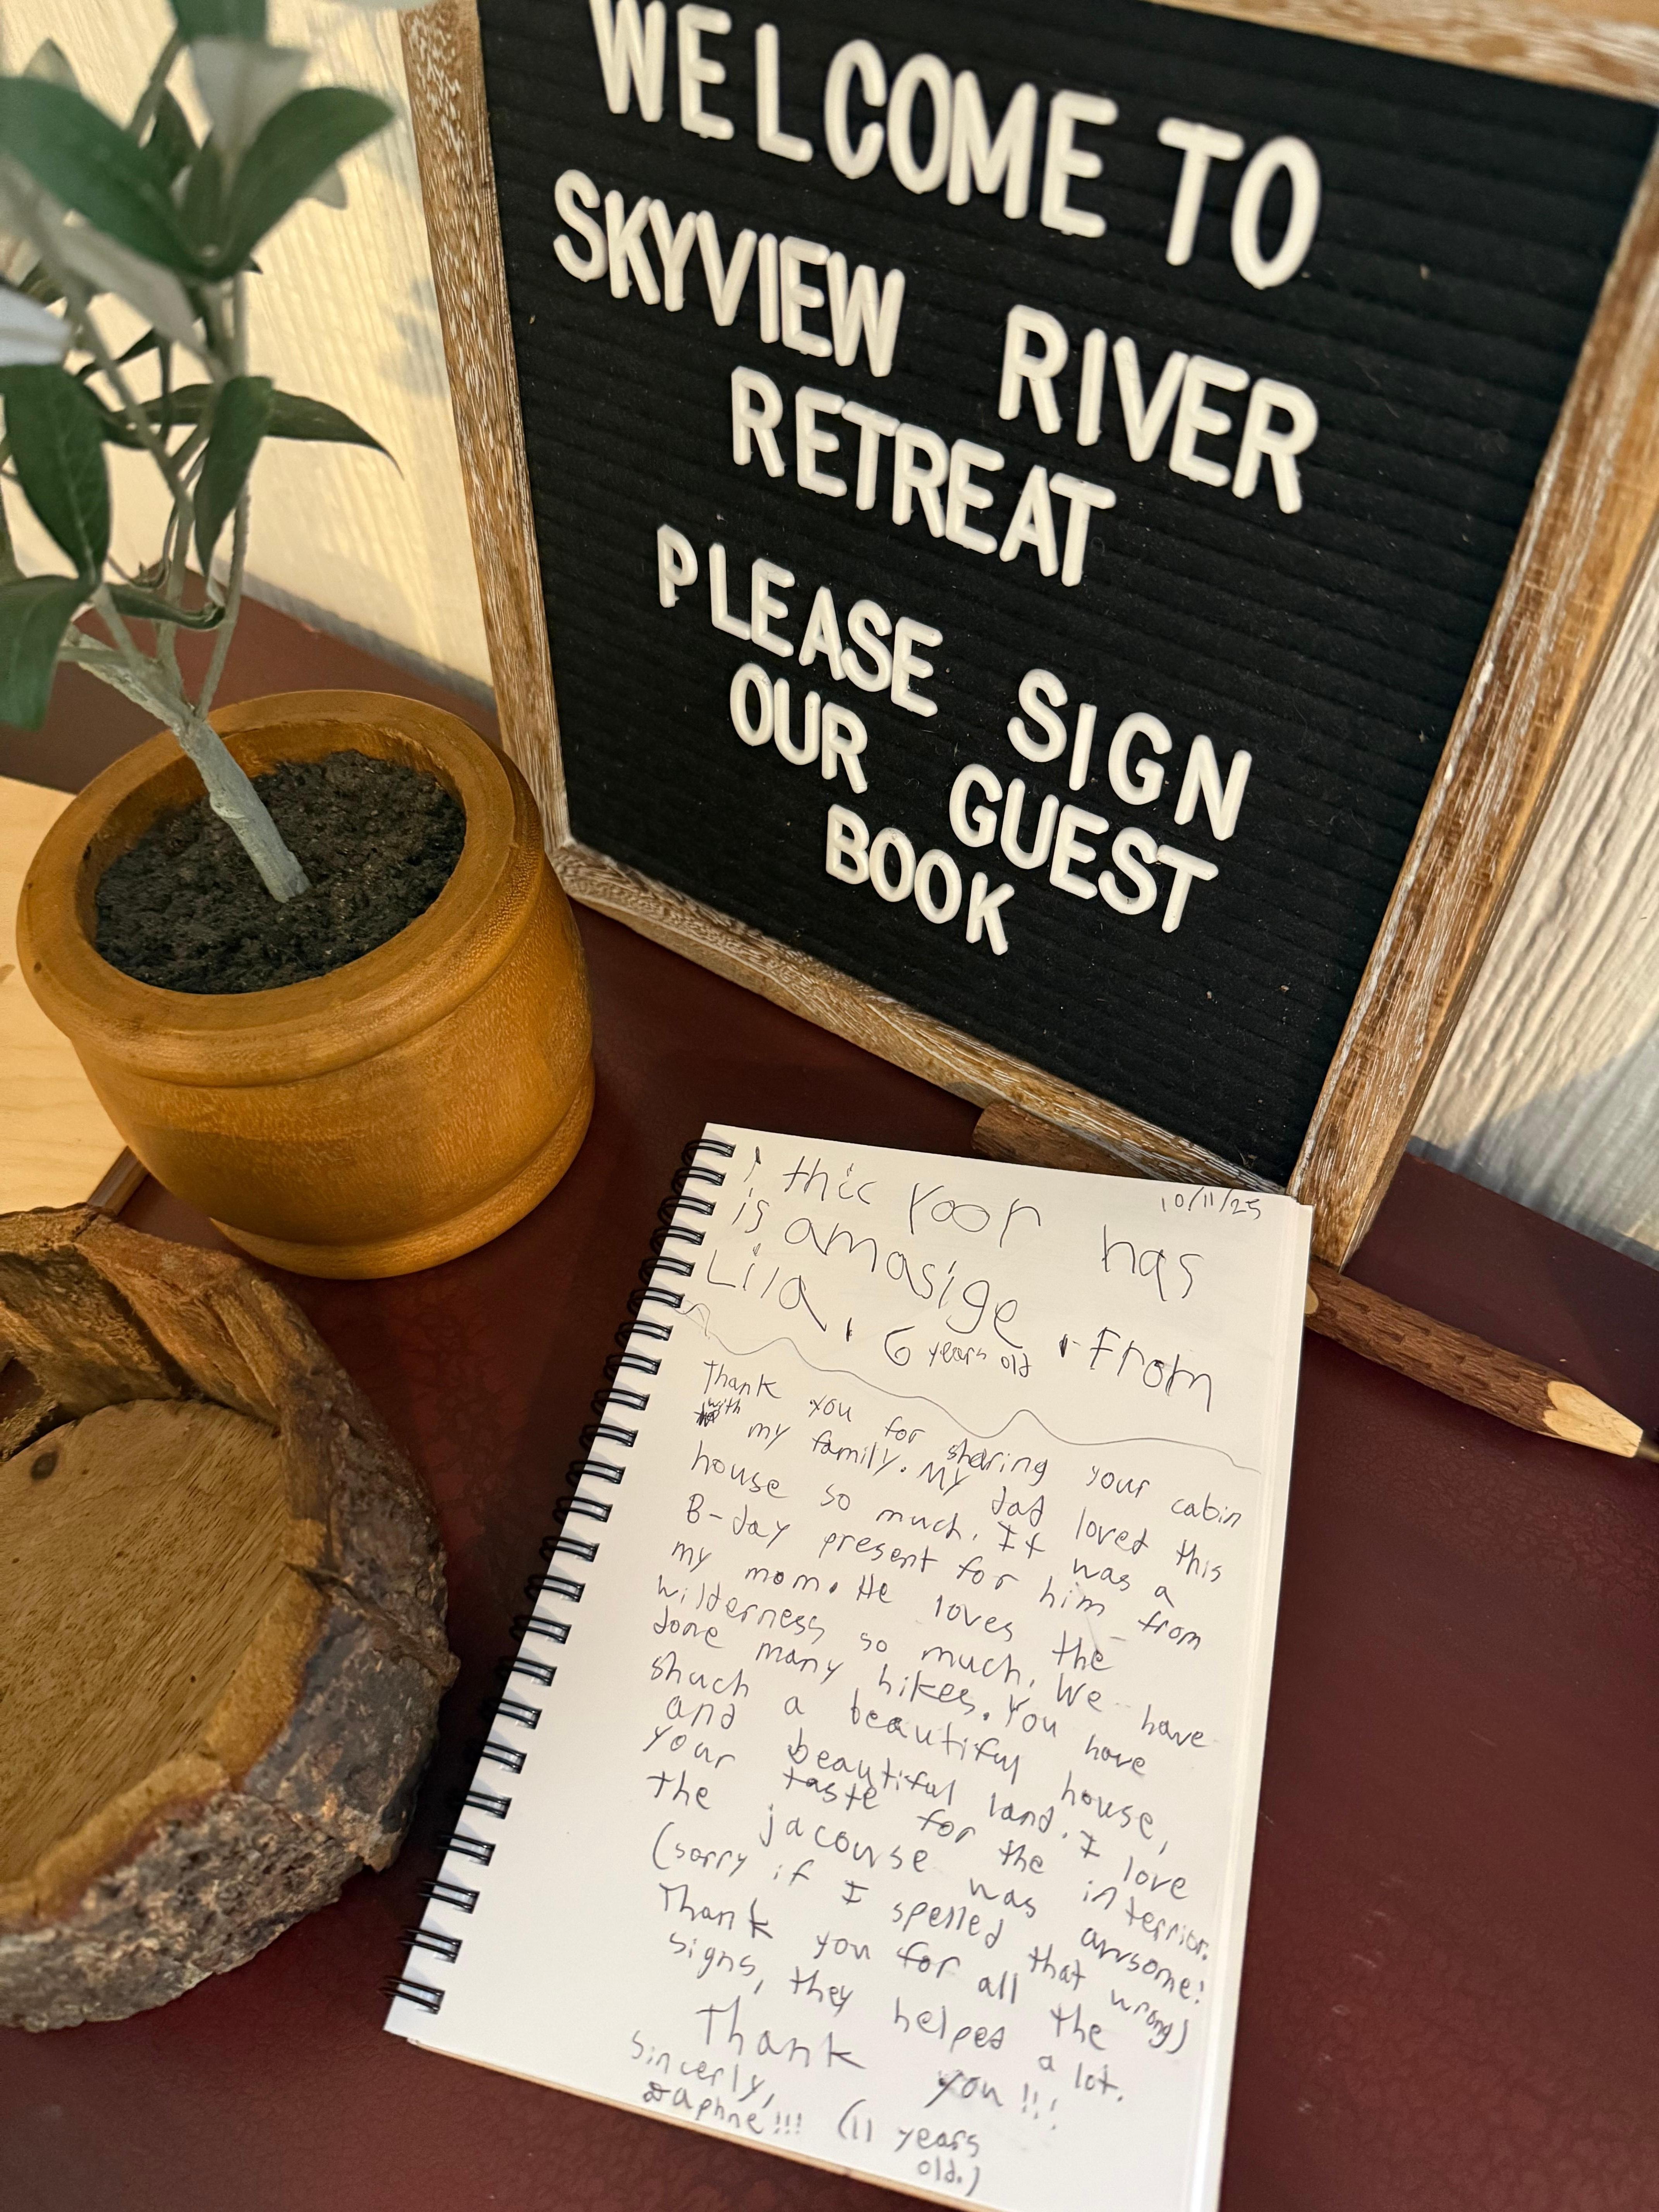 WELCOME TO
SKYVIEW RIVER
RETREAT
PLEASE SIGN
OUR GUEST
BOOK
10/11/25
i thic yoor has
is amasige. From
Lila, 6 years old
Thank you for sharing your cabin
with my family. My dad loved this
house so much. It was a
B-day present for him from
my mom. He loves the
wilderness so much. We have
done many hikes. You have
shuch a beautiful house,
and beautiful land. I love
your taste for the interrior.
the jacouse was awsome!
(sorry if I spelled that wrong)
Thank you for all the
signs, they helped a lot.
Thank you!!!
Sincerly,
Daphne!!! (11 years
old.)